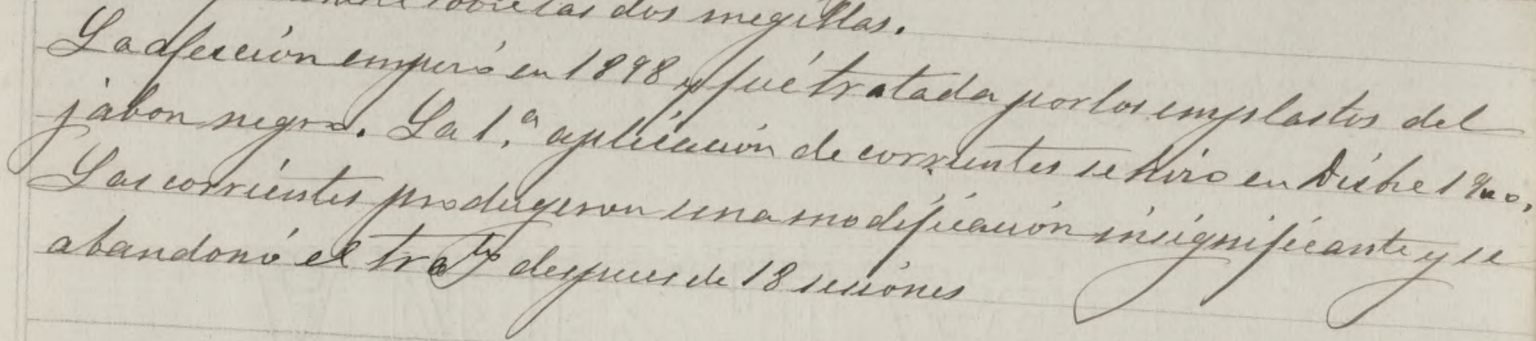 sobre las dos megillas.
La afección empezó en 1898 y fué tratada por los emplastos del
jabon negro. La 1.ª aplicación de corrientes se hizo en Dicbre 1900.
Las corrientes produgeron una modificación insignificante y se
abandonó el tratto despues de 18 sesiónes